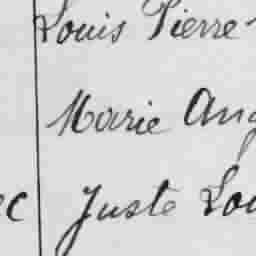 Louis Pierre
Marie Ang
ec Juste Lou